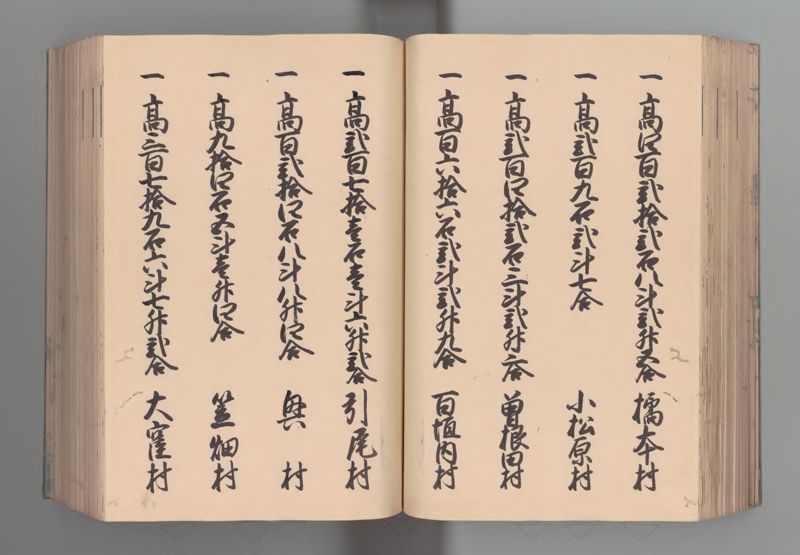 一 高四百弐拾弐石八斗弐升五合 橋本村
一 高弐百九石弐斗七合 小松原村
一 高弐百四拾弐石三斗弐升六合 曽根田村
一 高百六拾六石弐斗弐升九合 百垣内村
一 高弐百七拾壱石壱斗六升弐合 引尾村
一 高百弐拾四石八斗八升四合 奥村
一 高九拾四石五斗壱升四合 笠畑村
一 高三百七拾九石六斗七升弐合 大窪村